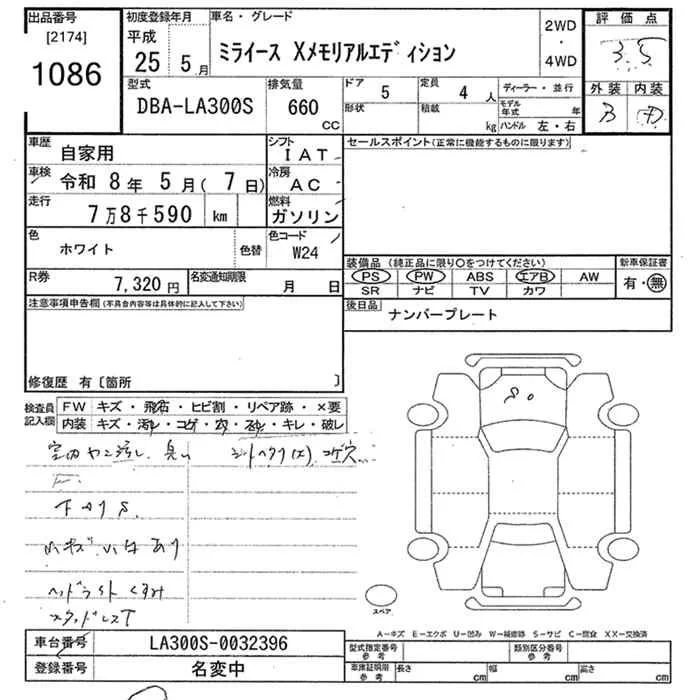 出品番号
[2174]
1086
初度登録年月
平成
25 5月
車名・グレード
ミライース Xメモリアルエディション
2WD
・
4WD
評価点
3.5
外装 内装
B D
型式
DBA-LA300S
排気量
660
cc
ドア 5
形状
定員 4 人
積載 kg
ディーラー・並行
モデル年式 年
ハンドル 左・右
車歴 自家用
車検 令和 8年 5月( 7日)
走行 7万8千590 km
シフト IAT
冷房 AC
燃料 ガソリン
色 ホワイト
色替
色コード W24
R券 7,320円
名変通知期限 月 日
セールスポイント(正常に機能するものに限ります)
装備品(純正品に限り〇をつけてください)
PS PW ABS エアB AW
SR ナビ TV カワ
新車保証書
有・無
後日品 ナンバープレート
注意事項申告欄(不具合内容等は具体的に記入して下さい)
修復歴 有〔箇所 〕
検査員記入欄
FW キズ・飛石・ヒビ割・リペア跡・×要
内装 キズ・汚れ・コゲ・穴・・キレ・破れ
下廻りS
小キズ.小凹あり
ヘッドライトくすみ
スタッドレスT
スペア
A-キズ E-エクボ U-凹み W-補修跡 S-サビ C-腐食 XX-交換済
車台番号 LA300S-0032396
登録番号 名変中
型式指定番号 参考
類別区分番号 参考
車庫証明用 参考
長さ cm 幅 cm 高さ cm